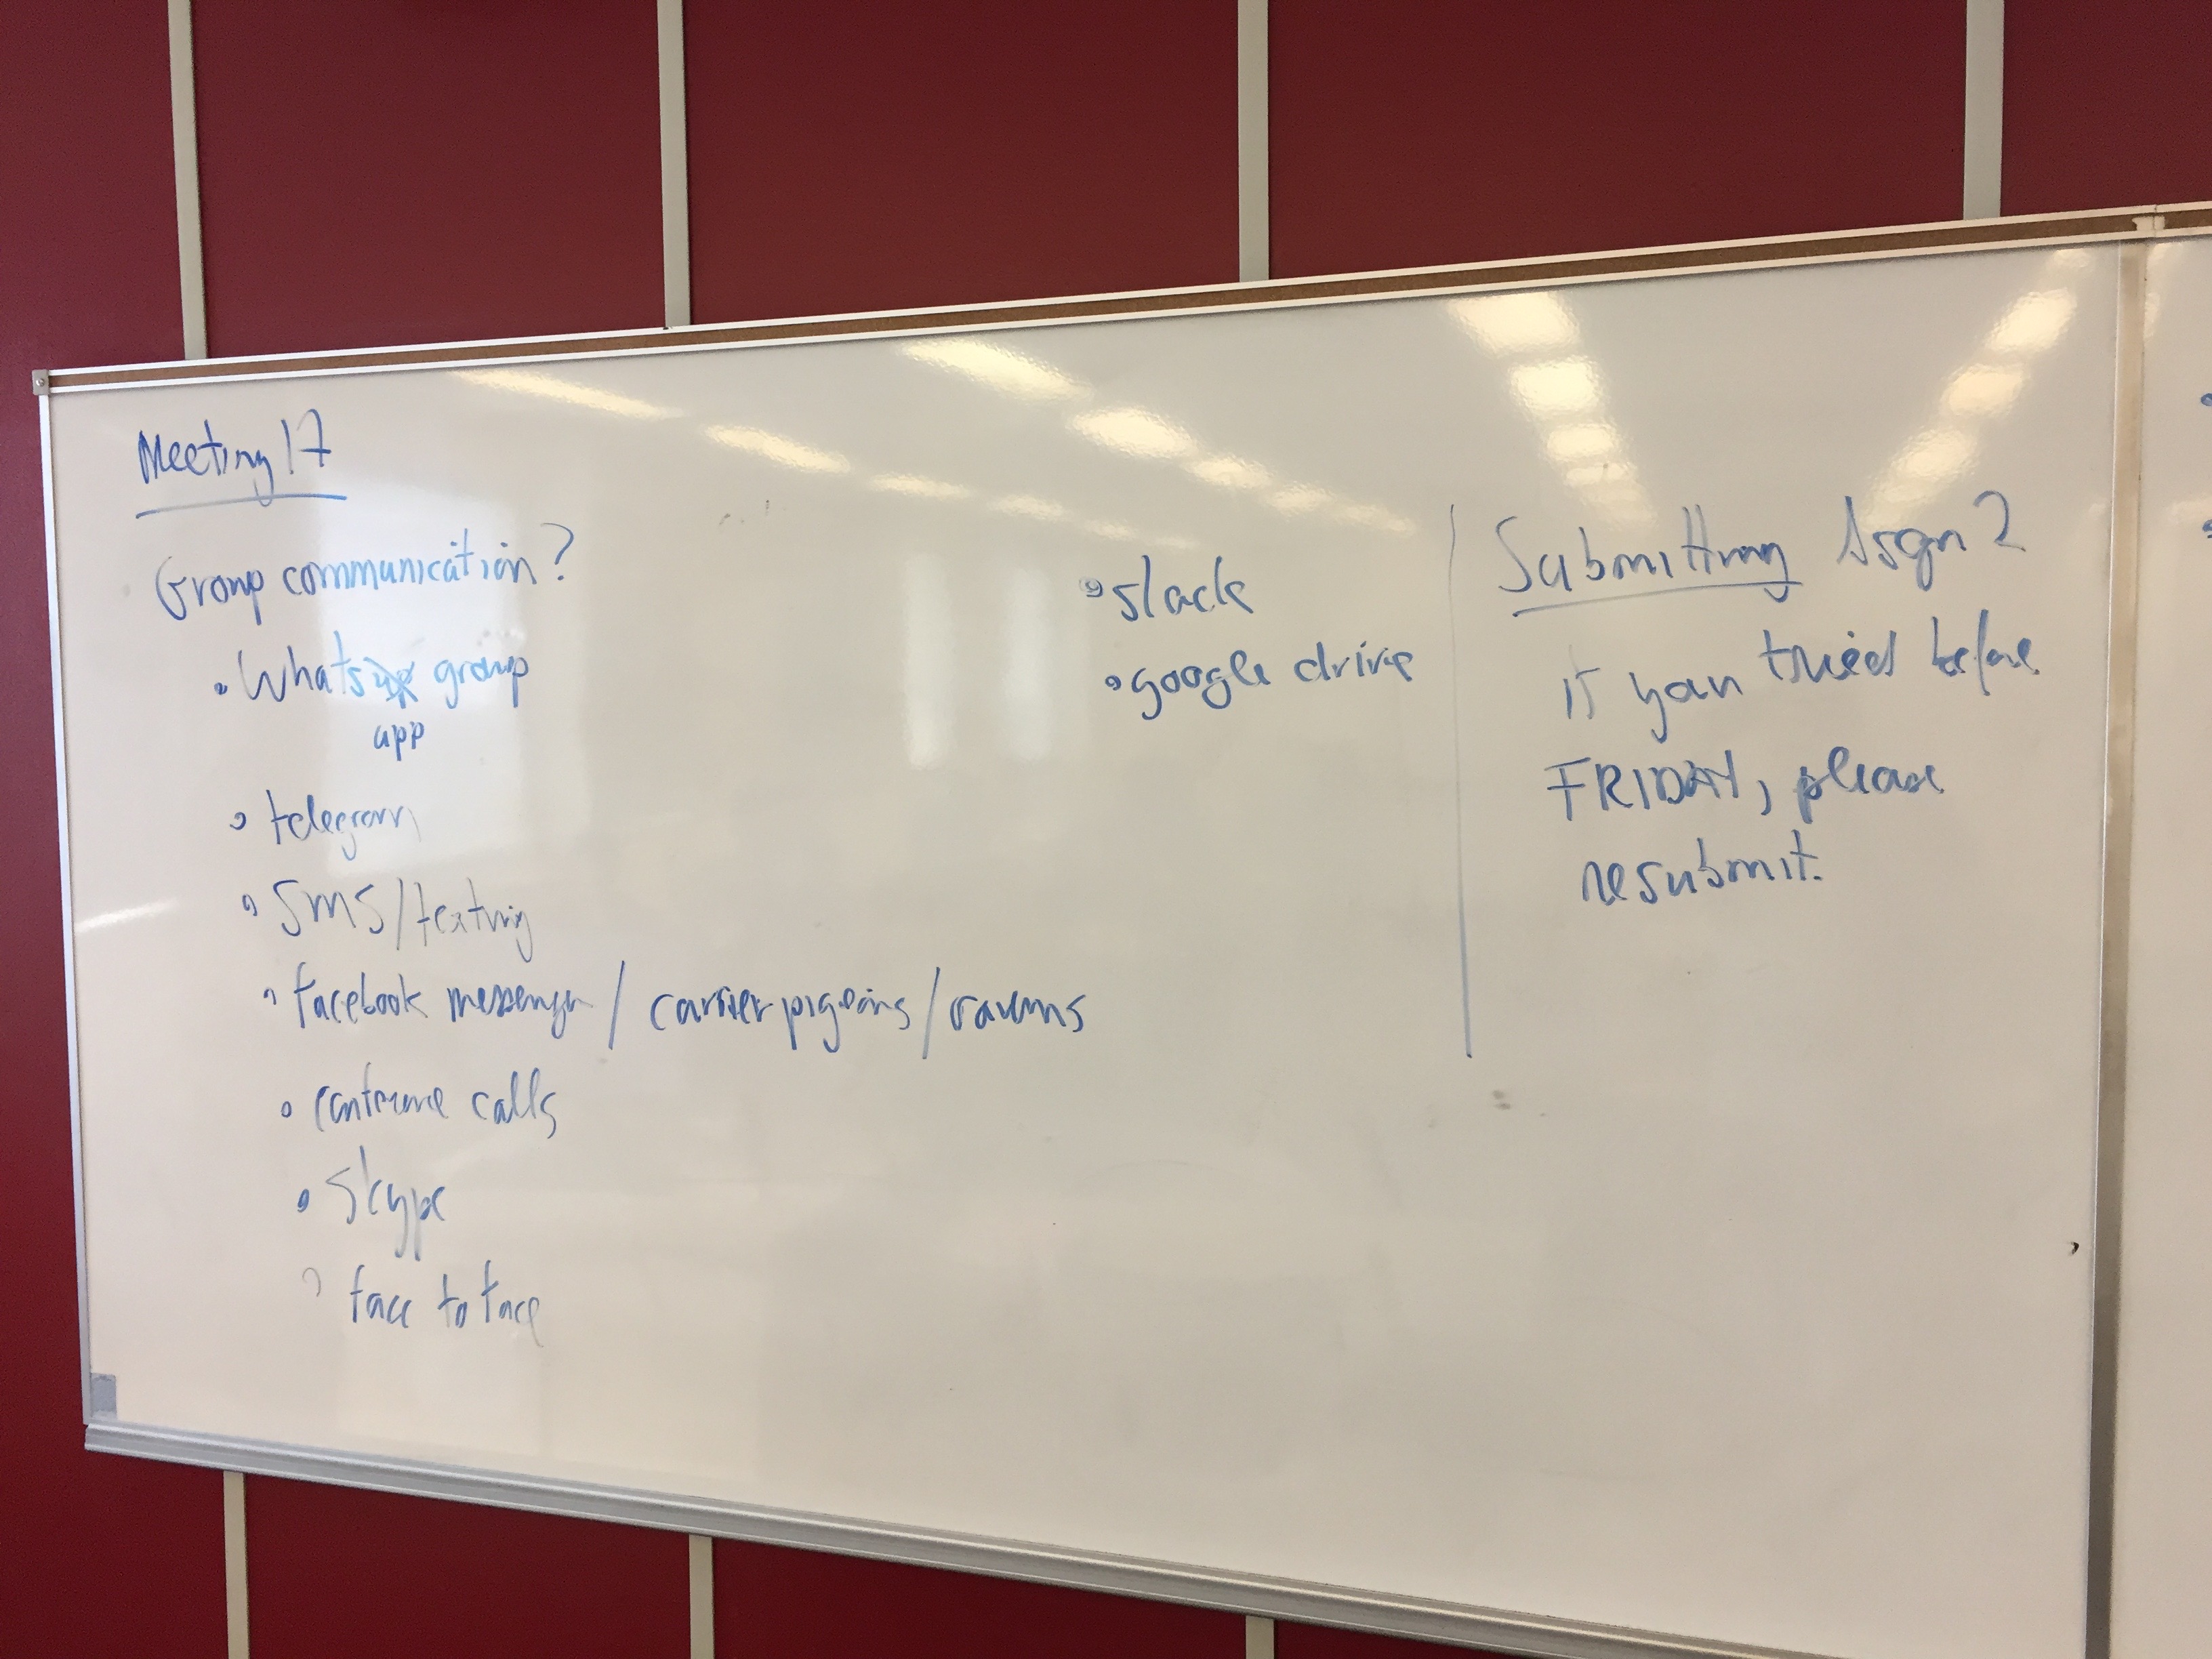 Meeting 17
Group communication?
• Whats group
app
• telegram
• SMS/texting
• facebook messenger / carrier pigeons / ravens
• conference calls
• skype
• face to face
• slack
• google drive
Submitting Assgn 2
if you tried before
FRIDAY, please
resubmit.